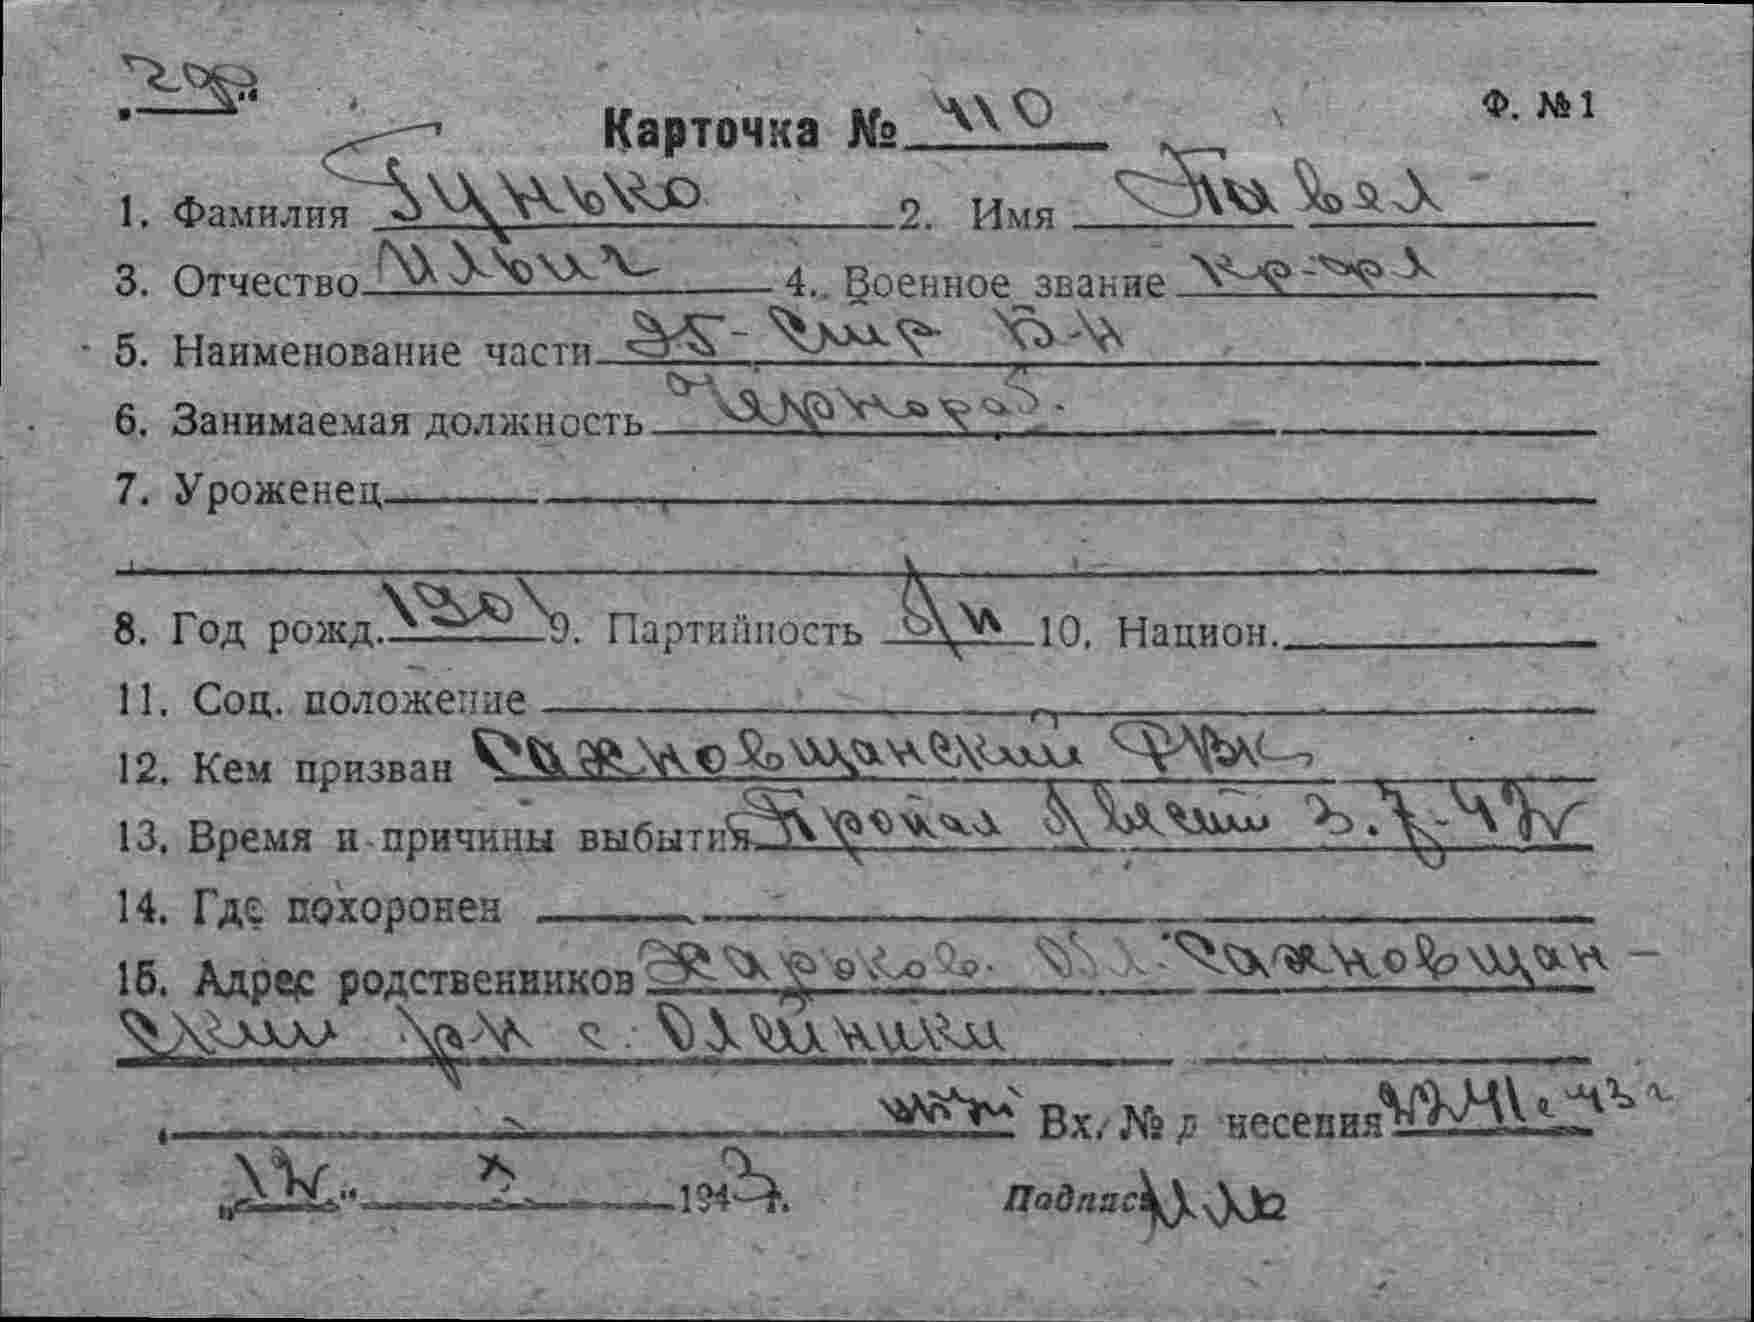 Карточка № 410 Ф. №1
1. Фамилия Гунько 2. Имя Павел
3. Отчество Ильич 4. Военное звание кр-арм
5. Наименование части 95-Стр Б-н
6. Занимаемая должность Чернораб.
7. Уроженец
8. Год рожд. 1901 9. Партийность б/п 10. Национ.
11. Соц. положение
12. Кем призван Сахновщанский РВК
13. Время и причины выбытия Пропал б/вести 3.7.42г
14. Где похоронен
15. Адрес родственников Харьков. Обл. Сахновщан-
ский р-н с. Олейники
Вх. № донесения 43г
" " X 1943г.
Подпись